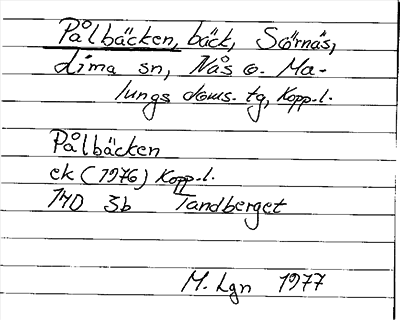 Pålbäcken, bäck, Sörnäs,
Lima sn, Nås o. Ma-
lungs doms. tg, Kopp.l.
Pålbäcken
ek (1976) Kopp.l.
14D 3b Tandberget
M. Lgn 1977